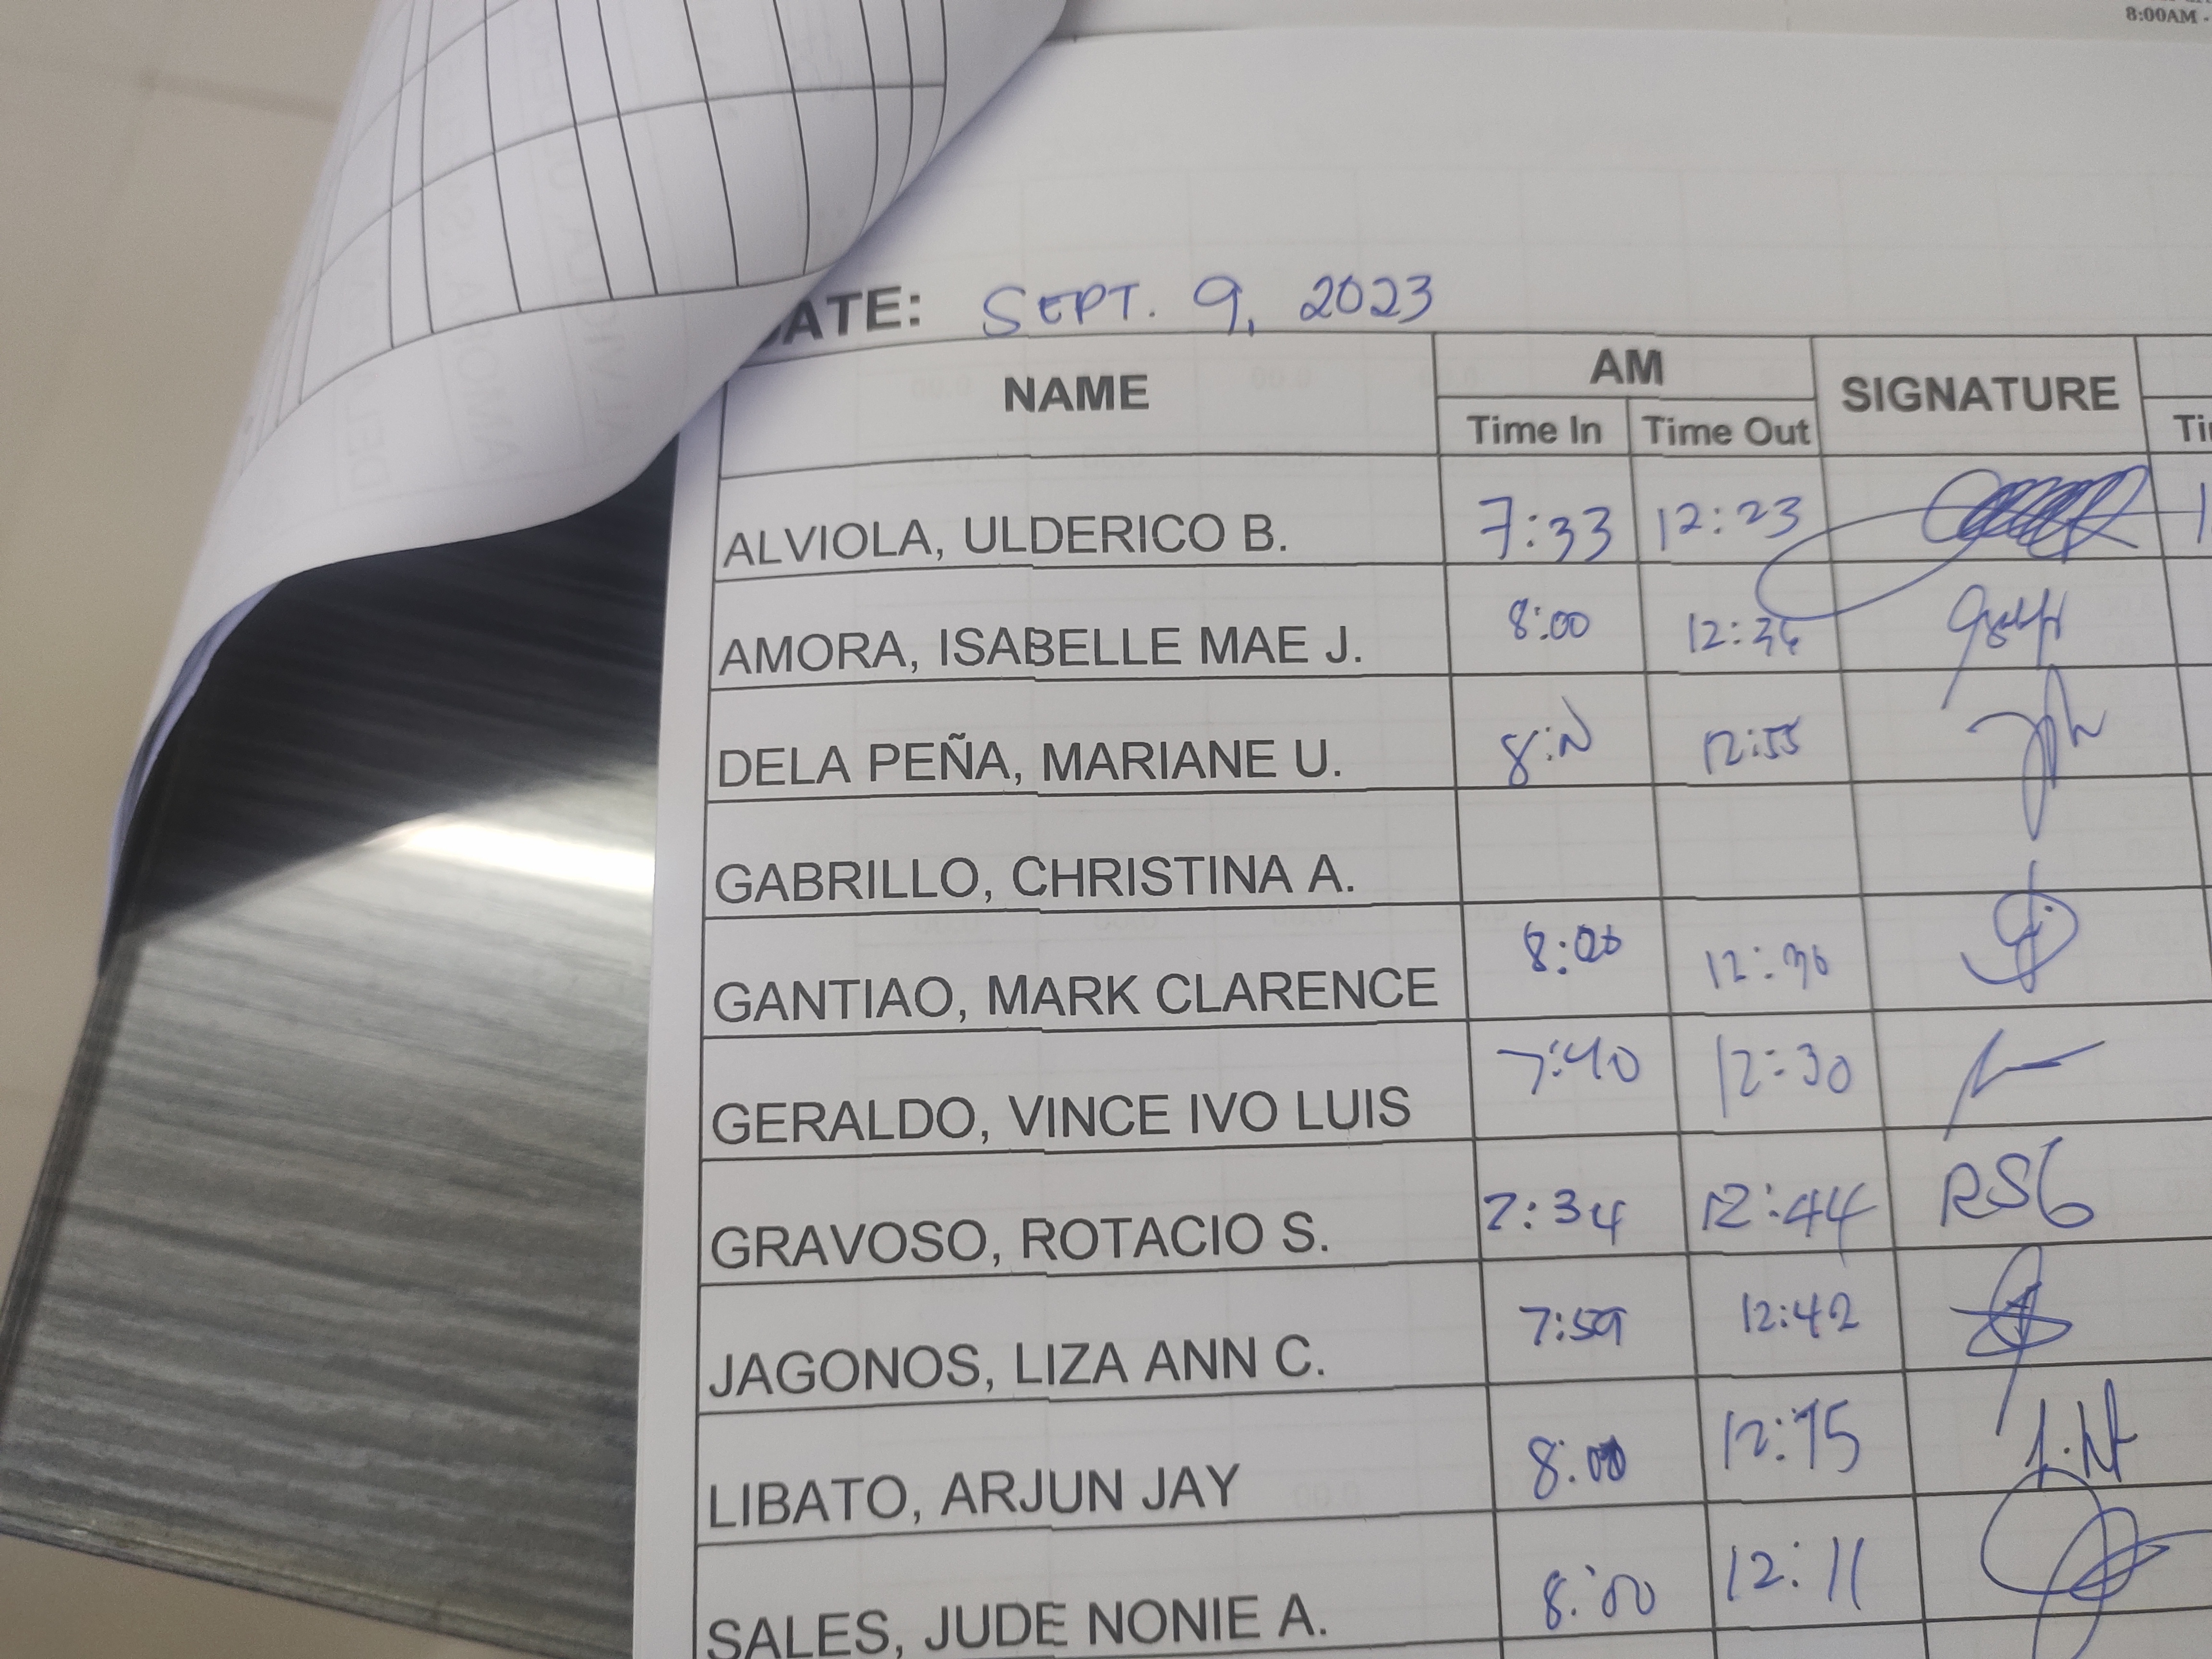 8:00AM -
DATE: SEPT. 9, 2023
NAME AM SIGNATURE
Time In Time Out
ALVIOLA, ULDERICO B. 7:33 12:23
AMORA, ISABELLE MAE J. 8:00 12:36
DELA PEÑA, MARIANE U. 12:55
GABRILLO, CHRISTINA A.
GANTIAO, MARK CLARENCE 8:00
GERALDO, VINCE IVO LUIS 7:40 12:30
GRAVOSO, ROTACIO S. 7:34 12:44 RSG
JAGONOS, LIZA ANN C. 7:59 12:42
LIBATO, ARJUN JAY 8:00 12:15
SALES, JUDE NONIE A. 8:00 12:11